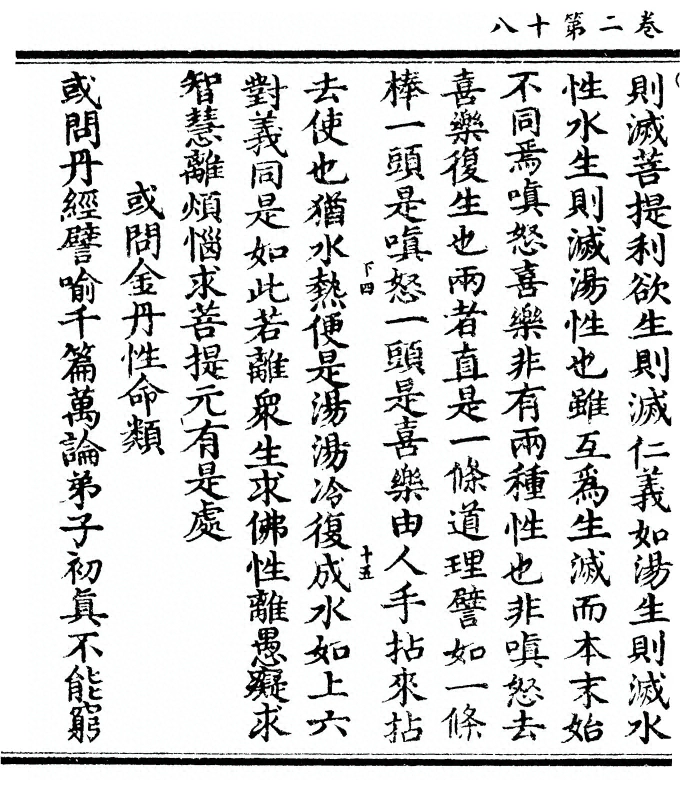 卷二第十八
則滅菩提利欲生則滅仁義如湯生則滅水
性水生則滅湯性也雖互爲生滅而本末始
不同焉嗔怒喜樂非有兩種性也非嗔怒去
喜樂復生也兩者直是一條道理譬如一條
棒一頭是嗔怒一頭是喜樂由人手拈來拈
下四
去使也猶水熱便是湯湯冷復成水如上六
十五
對義同是如此若離衆生求佛性離愚癡求
智慧離煩惱求菩提元有是處
或問金丹性命類
或問丹經譬喻千篇萬論弟子初眞不能窮